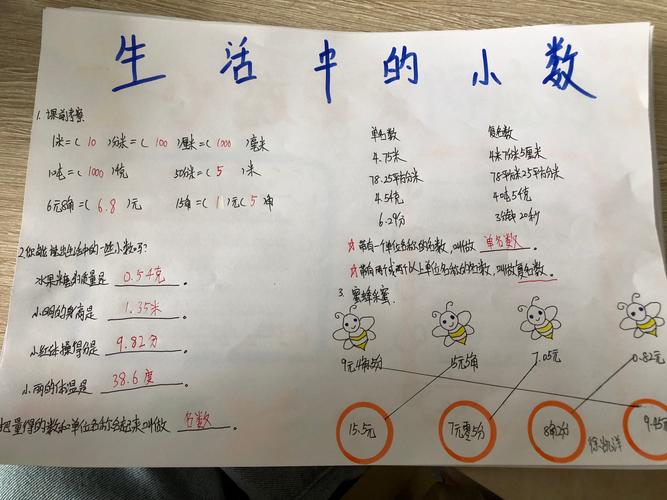 生活中的小数
1. 课前考察
1米=( 10 )分米=( 100 )厘米=( 1000 )毫米
10吨=( 1000 )千克 50分米=( 5 )米
6元8角=( 6.8 )元 15角=( 1 )元( 5 )角
2.你能说出生活中的一些小数吗?
水果糖的质量是 0.5千克 。
小明的身高是 1.35米 。
小红体操得分是 9.82分 。
小丽的体温是 38.6度 。
把量得的数和单位名称合起来叫做 名数 。
单名数 复名数
4.75米 4米7分米5厘米
78.25平方分米 78平方米25平方分米
4.54千克 40吨54千克
6.29分 3分钟20秒
带有一个单位名称的名数,叫做 单名数 。
带有两个或两个以上单位名称的名数,叫做复名数。
3. 蜜蜂采蜜.
9元4角5分 15元5角 7.05元 0.82元
15.5元 7元零5分 8角2分 9.45元